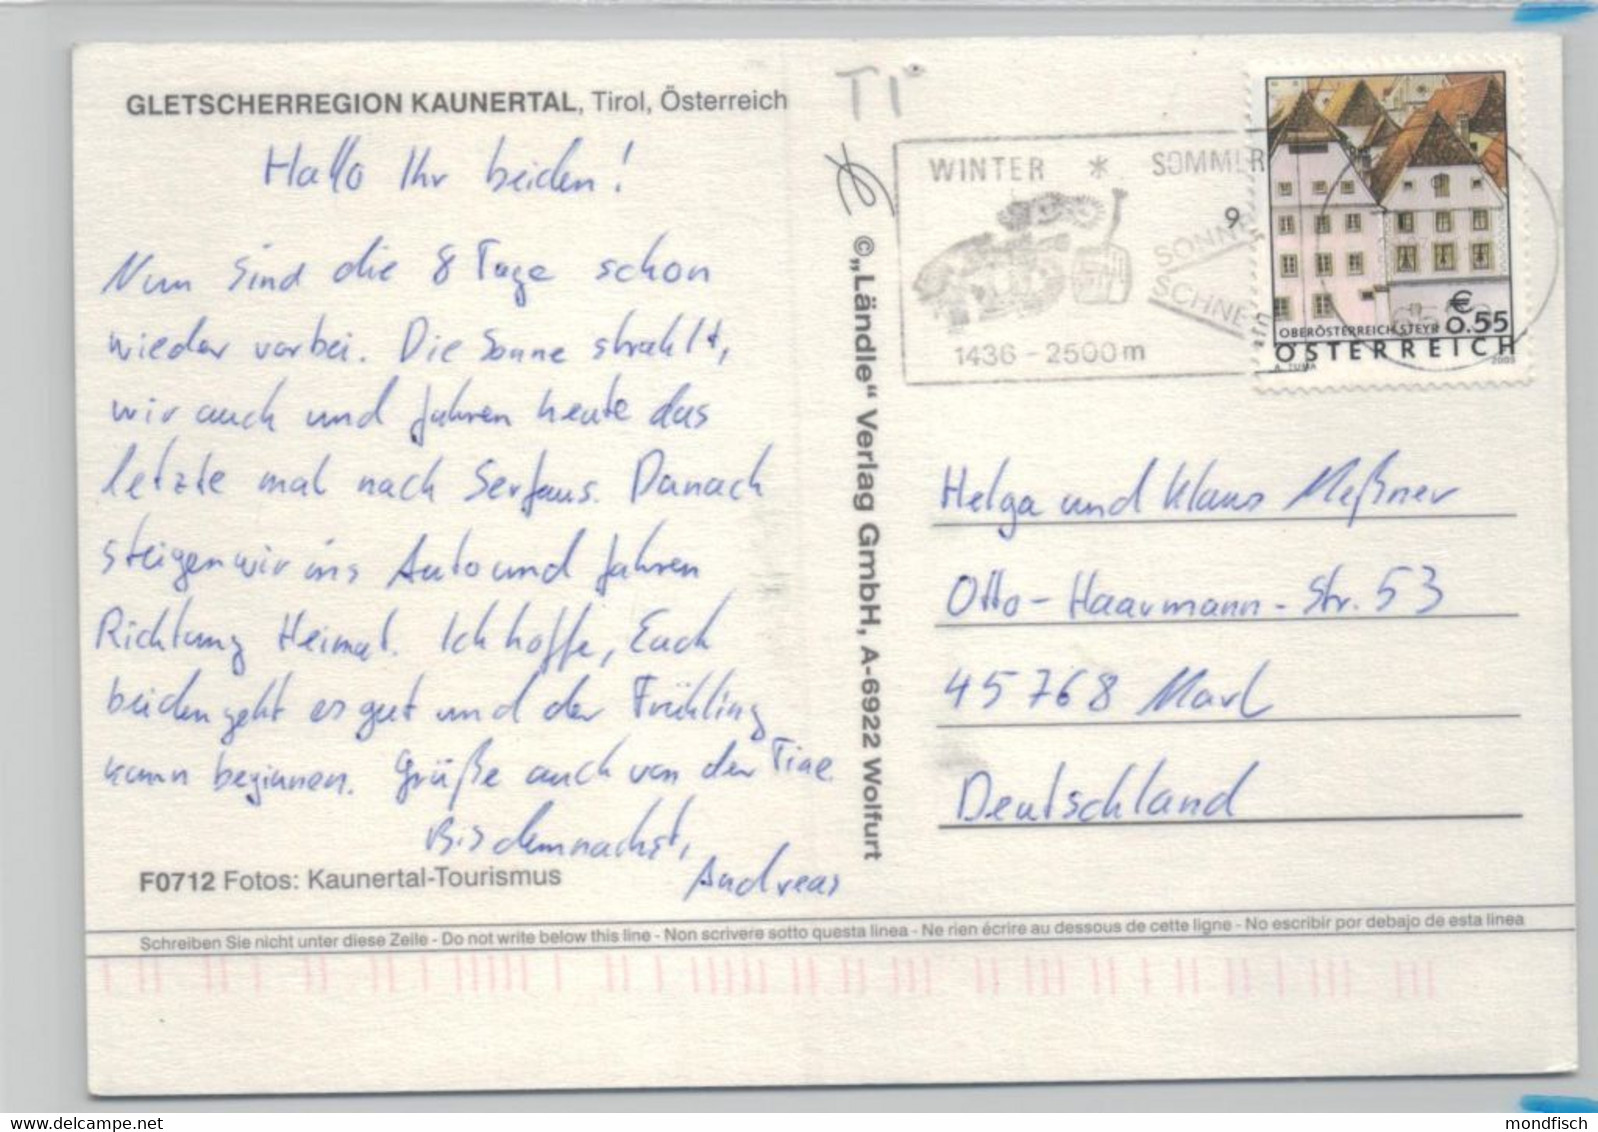 GLETSCHERREGION KAUNERTAL, Tirol, Österreich
Hallo Ihr beiden!
Nun sind die 8 Tage schon
wieder vorbei. Die Sonne strahlt,
wir auch und fahren heute das
letzte mal nach Serfaus. Danach
steigen wir ins Auto und fahren
Richtung Heimat. Ich hoffe, Euch
beiden geht es gut und der Frühling
kann beginnen. Grüße auch von der Tine
Bis demnachst,
Andreas
F0712 Fotos: Kaunertal-Tourismus
Schreiben Sie nicht unter diese Zeile - Do not write below this line - Non scrivere sotto questa linea - Ne rien écrire au dessous de cette ligne - No escribir por debajo de esta linea
© „Ländle“ Verlag GmbH, A-6922 Wolfurt
TI
WINTER * SOMMER
SONNE
SCHNEE
1436 - 2500 m
€
OBERÖSTERREICH STEYR 0.55
ÖSTERREICH
A. TUMA 2003
Helga und Klaus Meßner
Otto-Haarmann-Str. 53
45768 Marl
Deutschland
mondfisch